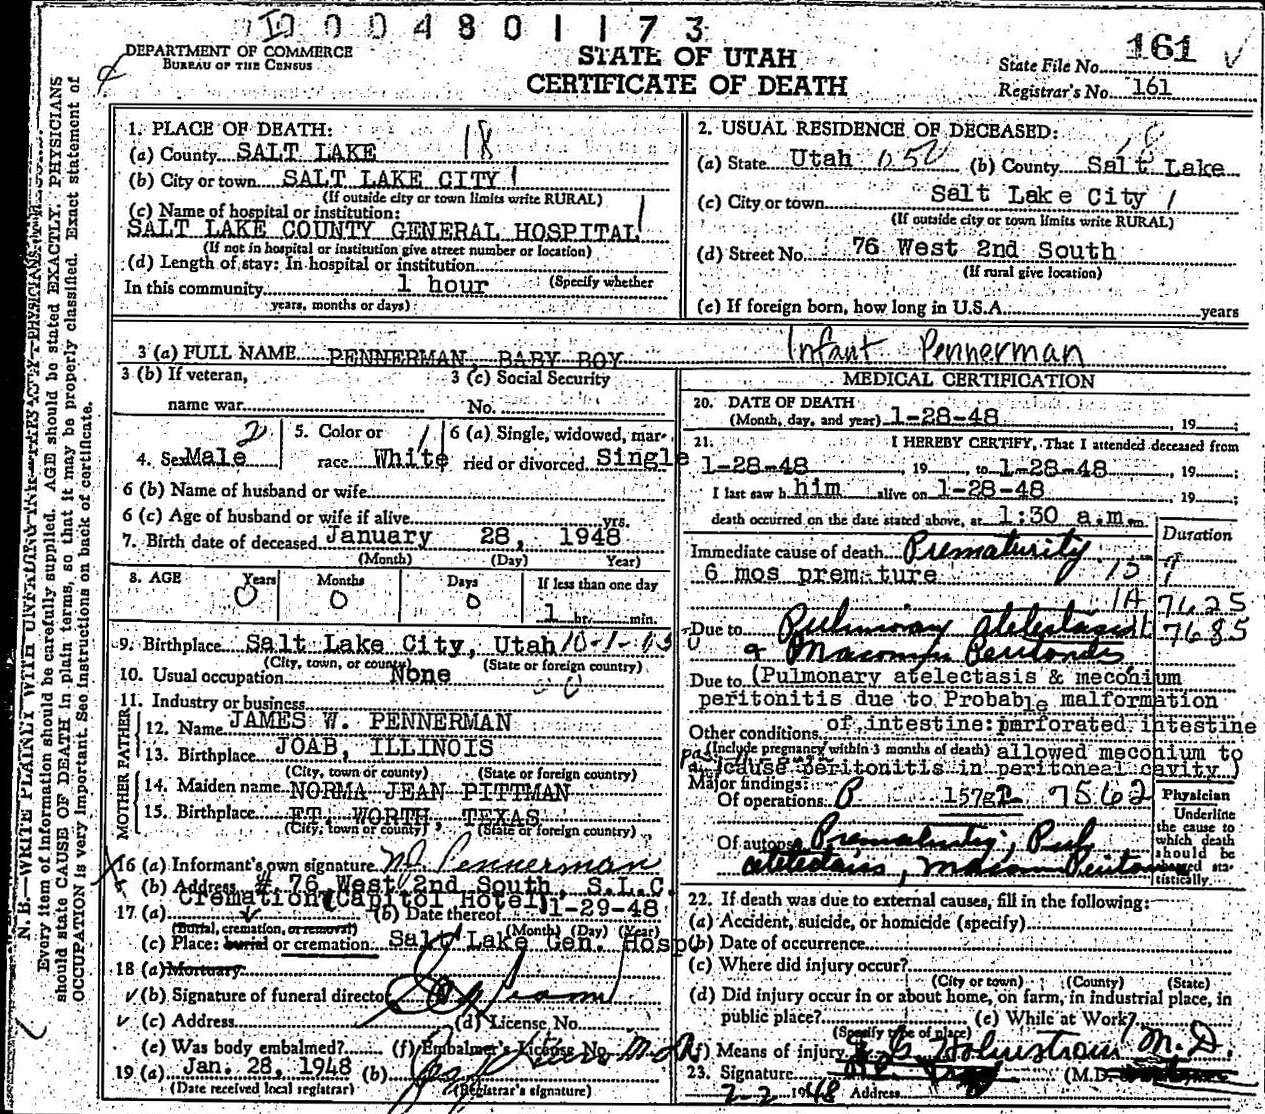 0004801173
DEPARTMENT OF COMMERCE
BUREAU OF THE CENSUS
STATE OF UTAH
CERTIFICATE OF DEATH
State File No. 161
Registrar's No. 161
N. B.—WRITE PLAINLY WITH UNFADING
Every item of information should be carefully supplied. AGE should be stated EXACTLY. PHYSICIANS
should state CAUSE OF DEATH in plain terms, so that it may be properly classified. Exact statement of
OCCUPATION is very important. See instructions on back of certificate.
1. PLACE OF DEATH: 18
(a) County SALT LAKE
(b) City or town SALT LAKE CITY 1
(If outside city or town limits write RURAL)
(c) Name of hospital or institution: 1
SALT LAKE COUNTY GENERAL HOSPITAL
(If not in hospital or institution give street number or location)
(d) Length of stay: In hospital or institution
(Specify whether
In this community 1 hour
years, months or days)
2. USUAL RESIDENCE OF DECEASED: 18
(a) State Utah 050 (b) County Salt Lake
(c) City or town Salt Lake City 1
(If outside city or town limits write RURAL)
(d) Street No. 76 West 2nd South
(If rural give location)
(e) If foreign born, how long in U.S.A. years
3 (a) FULL NAME PENNERMAN, BABY BOY Infant Pennerman
3 (b) If veteran,
name war
3 (c) Social Security
No.
4. Sex Male 2
5. Color or
race White 1
6 (a) Single, widowed, mar-
ried or divorced Single
6 (b) Name of husband or wife
6 (c) Age of husband or wife if alive yrs.
7. Birth date of deceased January 28, 1948
(Month) (Day) Year)
8. AGE Years Months Days If less than one day
0 0 0 1 hr. min.
9. Birthplace Salt Lake City, Utah 10-1-03
(City, town, or county) (State or foreign country)
10. Usual occupation None
11. Industry or business
FATHER
12. Name JAMES W. PENNERMAN
13. Birthplace JOAB, ILLINOIS
(City, town or county) (State or foreign country)
MOTHER
14. Maiden name NORMA JEAN PITTMAN
15. Birthplace FT. WORTH, TEXAS
(City, town or county) (State or foreign country)
16 (a) Informant's own signature Pennerman
(b) Address # 76 West 2nd South, S.L.C.
Cremation (Capitol Hotel)
17 (a) (b) Date thereof 1-29-48
(Burial, cremation, or removal) (Month) (Day) (Year)
(c) Place: burial or cremation Salt Lake Gen. Hosp
18 (a) Mortuary
(b) Signature of funeral director
(c) Address (d) License No.
(e) Was body embalmed? (f) Embalmer's License No.
19 (a) Jan. 28, 1948 (b)
(Date received local registrar) (Registrar's signature)
MEDICAL CERTIFICATION
20. DATE OF DEATH
(Month, day, and year) 1-28-48, 19 ;
21. I HEREBY CERTIFY, That I attended deceased from
1-28-48, 19 , to 1-28-48, 19 ;
I last saw h him alive on 1-28-48, 19 ;
death occurred on the date stated above, at 1:30 a.m.
Duration
Immediate cause of death Prematurity
6 mos premature
7625
7685
Due to Pulmonary atelectasis
& Meconium Peritonitis
Due to (Pulmonary atelectasis & meconium
peritonitis due to Probable malformation
Other conditions of intestine: perforated intestine
(Include pregnancy within 3 months of death) allowed meconium to
cause peritonitis in peritoneal cavity)
Major findings:
Of operations 157g 7562
Of autopsy Prematurity, Pul
atelectasis, Meconium Peritonitis
Physician
Underline
the cause to
which death
should be
charged sta-
tistically.
22. If death was due to external causes, fill in the following:
(a) Accident, suicide, or homicide (specify)
(b) Date of occurrence
(c) Where did injury occur?
(City or town) (County) (State)
(d) Did injury occur in or about home, on farm, in industrial place, in
public place? (e) While at Work?
(Specify type of place)
(f) Means of injury
Holmstrom M.D.
23. Signature (M.D.
2-2 1948 Address